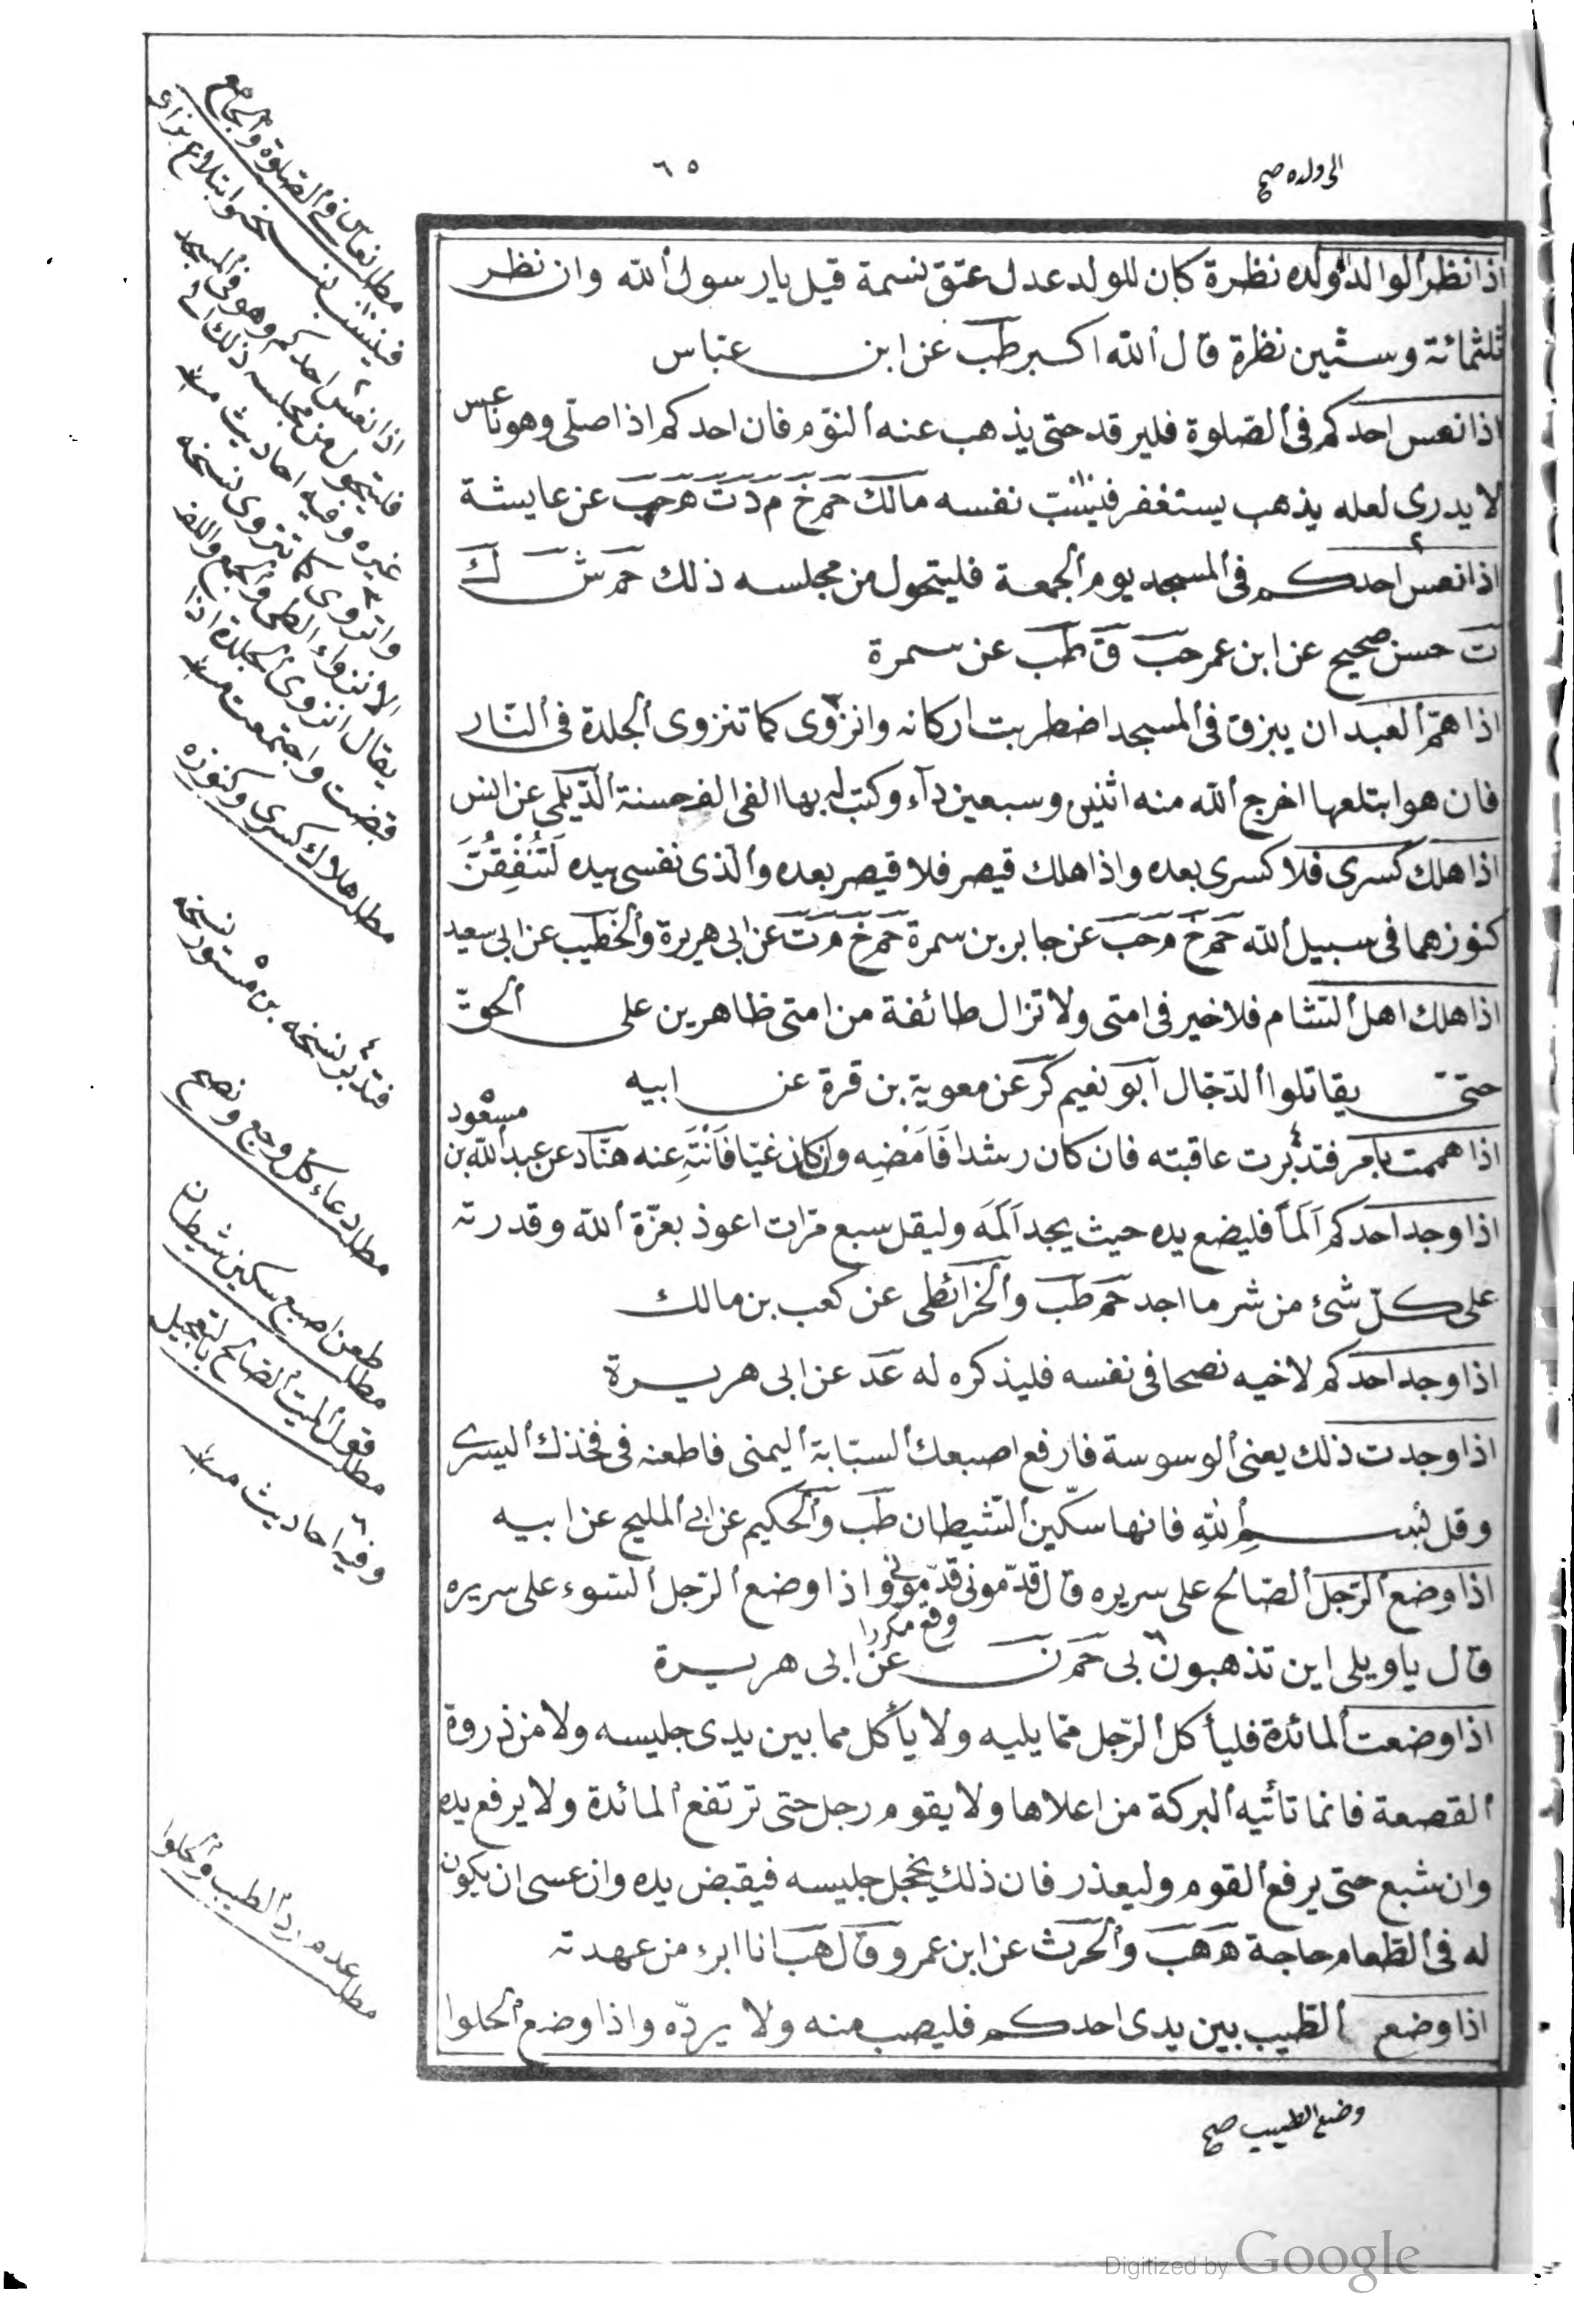 ٦٥
الى ولده صح
اذا نظر الوالد ولده نظرة كان للولد عدل عتق نسمة قيل يا رسول الله وان نظر
ثلثمائة وستين نظرة قال الله اكبر طب عن ابن عباس
اذا نعس احدكم فى الصلوة فليرقد حتى يذهب عنه النوم فان احدكم اذا صلى وهو ناعس
لا يدرى لعله يذهب يستغفر فيسب نفسه مالك حم خ م د ت ه حب عن عايشة
اذا نعس احدكم فى المسجد يوم الجمعة فليتحول من مجلسه ذلك حم ش ك
ت حسن صحيح عن ابن عمر حب ق طب عن سمرة
اذا همّ العبد ان يبزق فى المسجد اضطربت اركانه وانزوى كما تنزوى الجلدة فى النّار
فان هو ابتلعها اخرج الله منه اثنين وسبعين دآء وكتب له بها الفى الف حسنة الدّيلمى عن انس
اذا هلك كسرى فلا كسرى بعده واذا هلك قيصر فلا قيصر بعده والّذى نفسى بيده لَتُنْفِقُنَّ
كنوزهما فى سبيل الله حم خ م حب عن جابر بن سمرة حم خ م ت عن ابى هريرة والخطيب عن ابى سعيد
اذا هلك اهل الشّام فلا خير فى امتى ولا تزال طائفة من امتى ظاهرين على الحقّ
حتى يقاتلوا الدّجّال ابو نعيم كر عن معوية بن قرة عن ابيه
اذا هممت بامر فتدبّرت عاقبته فان كان رشدا فَاَمْضِه وان كان غيّا فَانْتَهِ عنه هنّاد عن عبد الله بن مسعود
اذا وجد احدكم اَلَماً فليضع يده حيث يجد اَلَمَه وليقل سبع مرّات اعوذ بعزّة الله وقدرته
على كلّ شئ من شر ما اجد حم طب والخرائطى عن كعب بن مالك
اذا وجد احدكم لاخيه نصحا فى نفسه فليذكره له عد عن ابى هريرة
اذا وجدت ذلك يعنى الوسوسة فارفع اصبعك السبّابة اليمنى فاطعنه فى فخذك اليسرى
وقل بسم الله فانها سكّين الشّيطان طب والحكيم عن ابى المليح عن ابيه
اذا وضع الرّجل الصّالح على سريره قال قدّمونى قدّمونى واذا وضع الرّجل السّوء على سريره
وقع مكررا
قال يا ويلى اين تذهبون بى حم ن عن ابى هريرة
اذا وضعت المائدة فليأكل الرّجل ممّا يليه ولا يأكل مما بين يدى جليسه ولا من ذروة
القصعة فانما تأتيه البركة من اعلاها ولا يقوم رجل حتى ترتفع المائدة ولا يرفع يده
وان شبع حتى يرفع القوم وليعذر فان ذلك يخجل جليسه فيقبض يده وان عسى ان يكون
له فى الطّعام حاجة ه هب والحرث عن ابن عمر وقال هب انا ابرء من عهدته
اذا وضع الطّيب بين يدى احدكم فليصب منه ولا يردّه واذا وضع الحلوا
وضع الطيب صح
مطلب نعاس فى الصّلوة والجامع
فيسب نسخه وابتلاع بزاق
اذا نعس احدكم وهو فى المسجد
فليتحول من مجلسه ذلك الى
غيره وفيه احاديث منه
وانزوى كما تنزوى نسخه
الانزواء الطى والجمع واللف
يقال انزوى الجلدة اذا
قبضت واجتمعت منه
مطلب هلاك كسرى وكنوزه
فتدبر نسخه بن مستورد نسخه
مطلب دعاء كل وجع ونصح
مطلب طعن اصبع سكين شيطان
مطلب قول الميت الصالح بالتعجيل
وفيه احاديث منه
مطلب عدم رد الطيب والحلوا
Digitized by Google